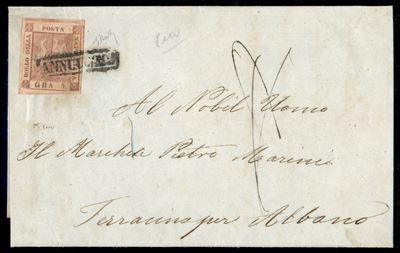 POSTA
BOLLO DELLA
ANNULLATO
GRA 5
Al Nobil Uomo
Il Marchese Pietro Marini
Terracina per Albano